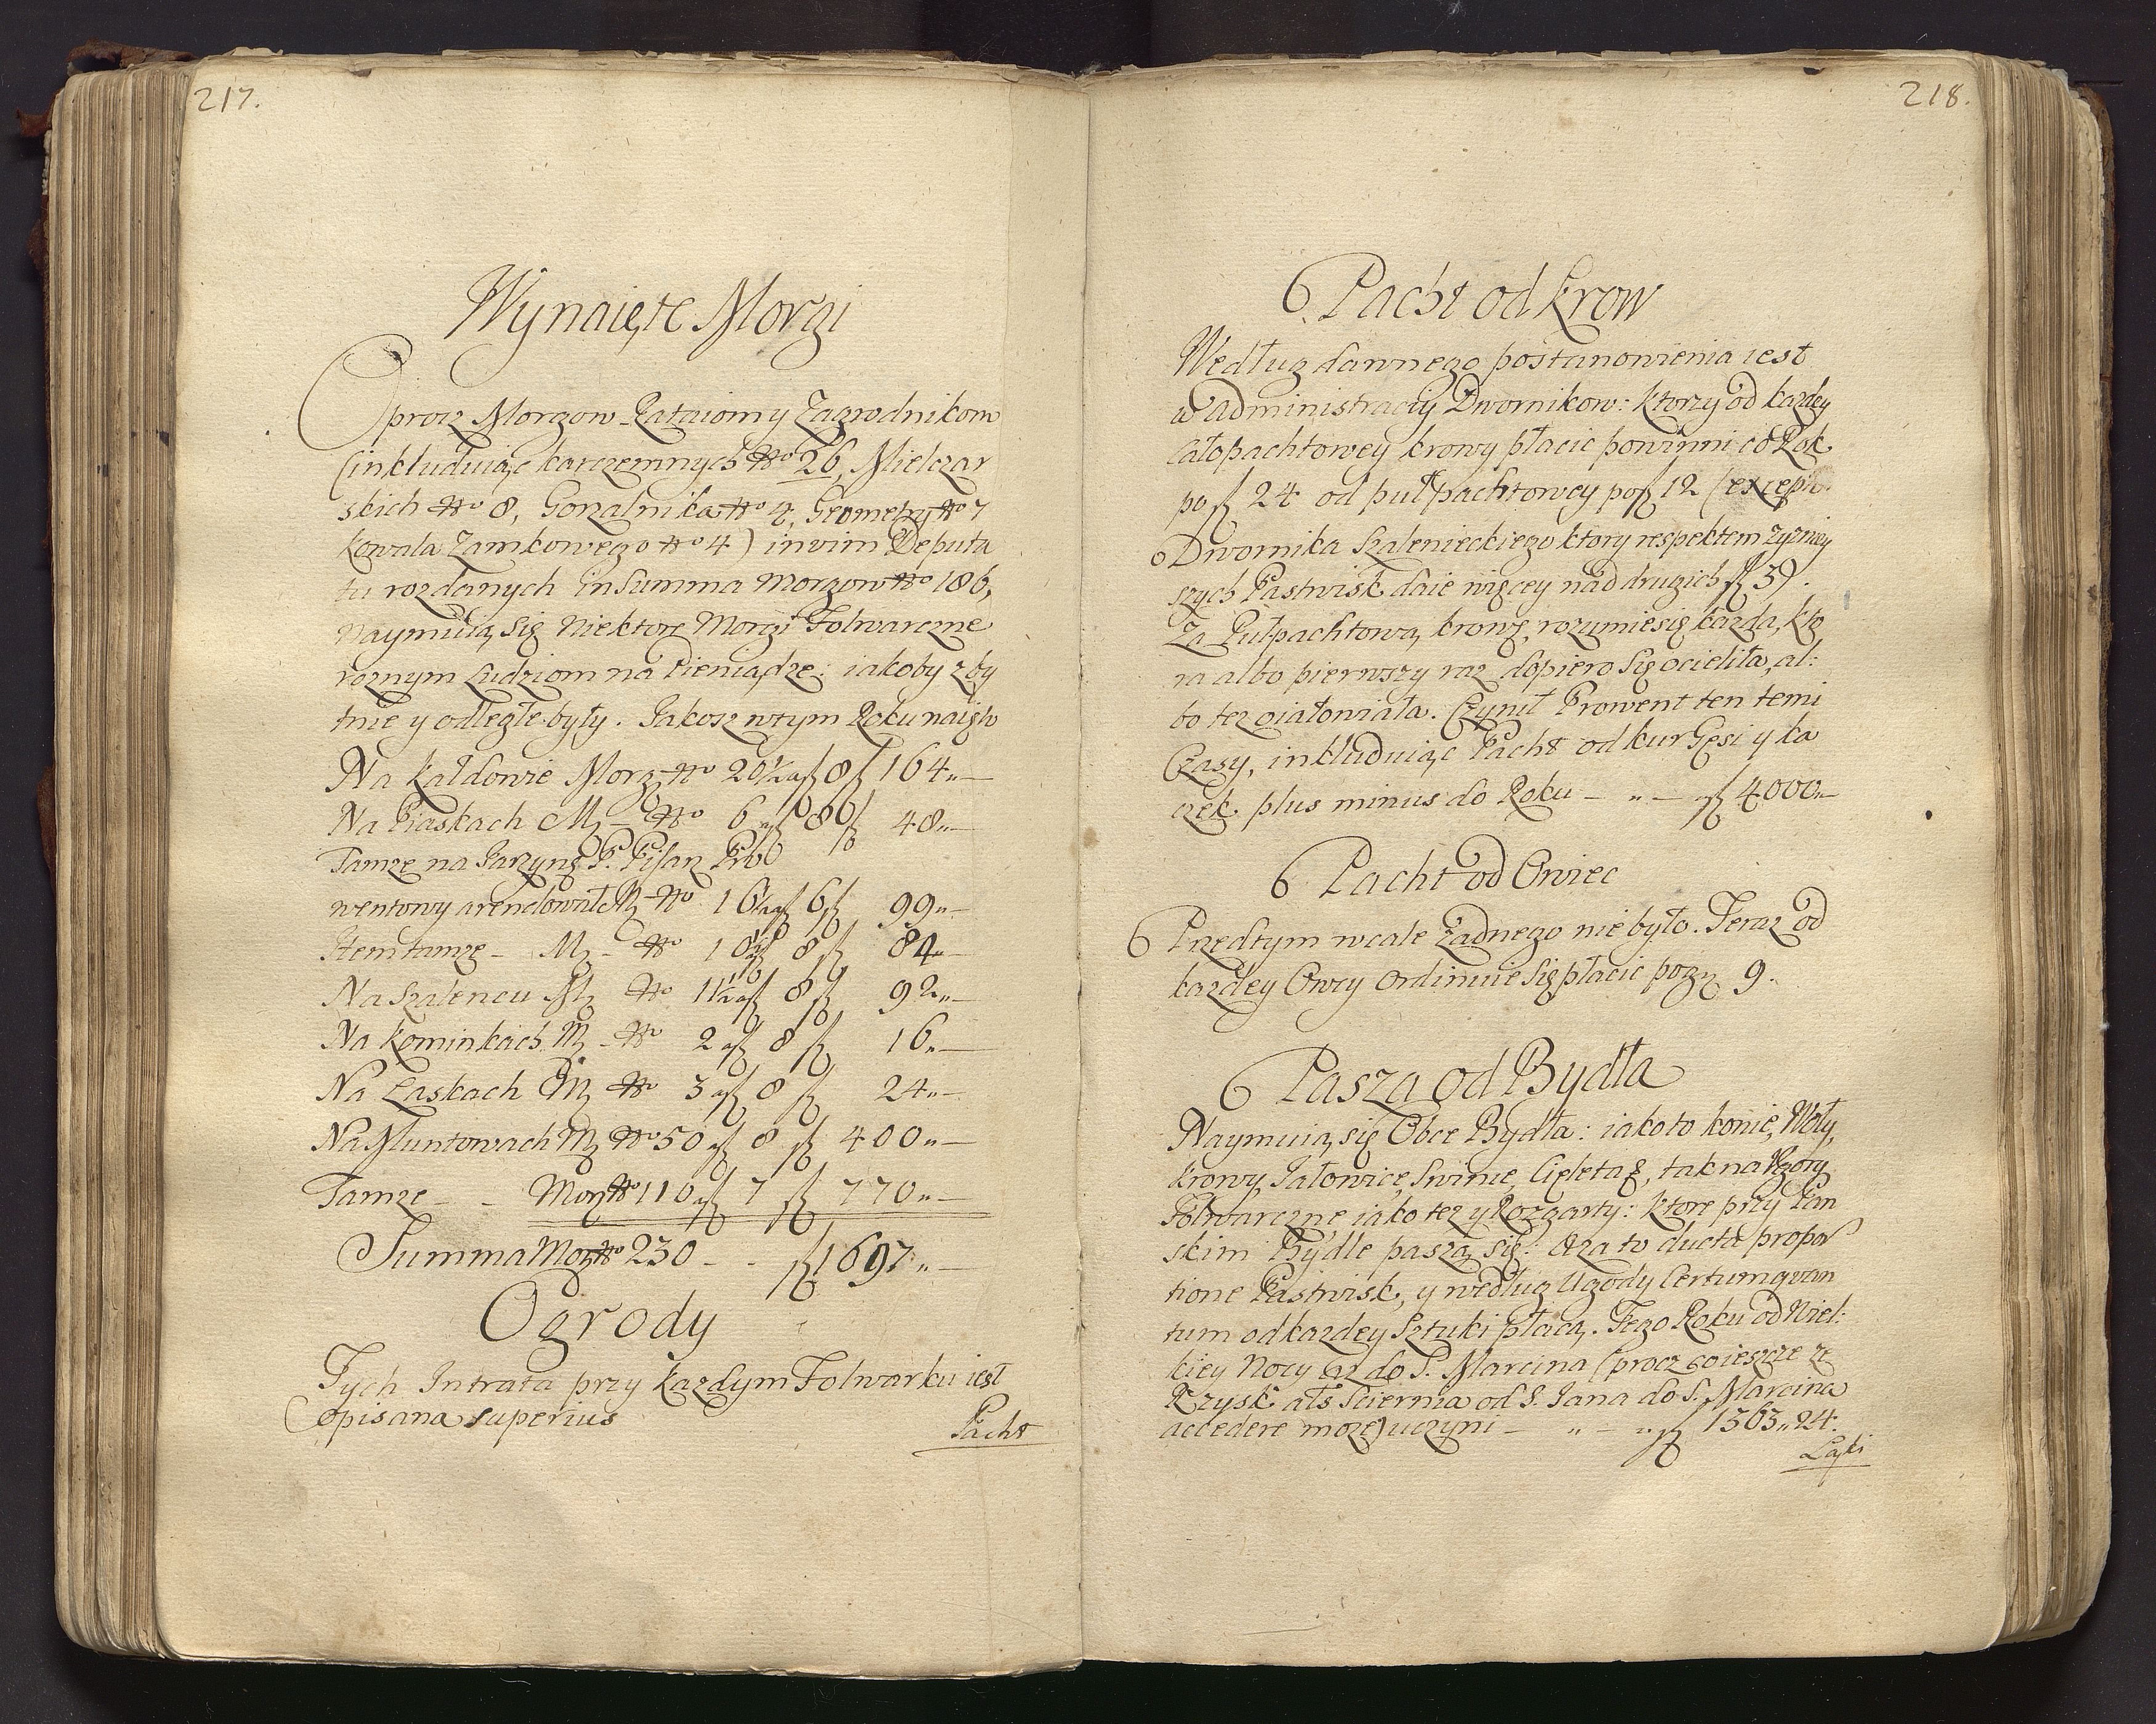 217.
Wynaięte Morgi
Oprocz Morgow Rataiom y Zagrodnikom
(inkluduiąc karczemnych No 26, Mielczar
skich No 8, Gorzalnika No 4, Geometry No 7
Kowala Zamkowego No 4) in vim Deputa
tu rozdanych in Summa Morgow No 186,
Naymuią się Niektore Morgi Folwarczne
roznym Ludziom na Pieniądze: iakoby zby
tnie y odległe były. Jakosz w tym Roku naięto
Na Kałdowie Morg No 20½ a fl 8 fl 164 „ —
Na Piaskach Mg — No 6 a fl 8 fl 48 „ —
Tamze na Jarzynę P. Pisarz Pro
wentowy arendował Mg No 16½ a fl 6 fl 99 „ —
Item tamze — Mg — No 10½ a fl 8 fl 84 „ —
Na Szalencu Mg No 11½ a fl 8 fl 92 „ —
Na Kominkach Mg — No 2 a fl 8 fl 16 „ —
Na Laskach Mg No 3 a fl 8 fl 24 „ —
Na Muntowach Mg No 50 a fl 8 fl 400 „ —
Tamze — — Morg No 110 a fl 7 fl 770 „ —
Summa Morg No 230 — - fl 1697 „ —
Ogrody
Tych Intrata przy kazdym Folwarku iest
opisana superius
Pacht
218.
Pacht od Krow
Według dawnego postanowienia iest
w administracij Dwornikow: ktorzy od kazdey
całopachtowey krowy płacic powinni co Rok
po fl 24 od pułpachtowey po fl 12 (excepto
Dwornika Szalenieckiego ktory respektem zyzniey
szych Pastwisk daie więcey nad drugich fl 3).
Za Pułpachtową krowę, rozumie się kazda, kto
ra albo pierwszy raz dopiero się ocieliła, al:
bo tez oiałowiała. Czynił Prowent ten temi
Czasy, inkluduiąc Pacht od kur Gęsi y ka
czek plus minus do Roku — „ — a fl 4000 „ —
Pacht od Owiec
Przedtym wcale żadnego nie było. Teraz od
kazdey Owcy ordinuie się płacic po gr 9.
Pasza od Bydła
Naymuią się Obce Bydła: iako to konie, Woły,
krowy, Jałowice, Swinie, Cięleta &, tak na
Folwarczne iako tez y Rozgarty: ktore przy Pan
skim Bydle paszą się. A za to ducta propor
tione Pastwisk, y według Ugody Certum quan
tum od kazdey Sztuki płacą. Tego Roku od Wiel:
kiey Nocy az do S. Marcina (procz co ieszcze ze
Rzysk als Sciernia od S. Jana do S. Marcina
accedere moze) uczyni — „ — „ fl 1563 „ 24.
Łąki